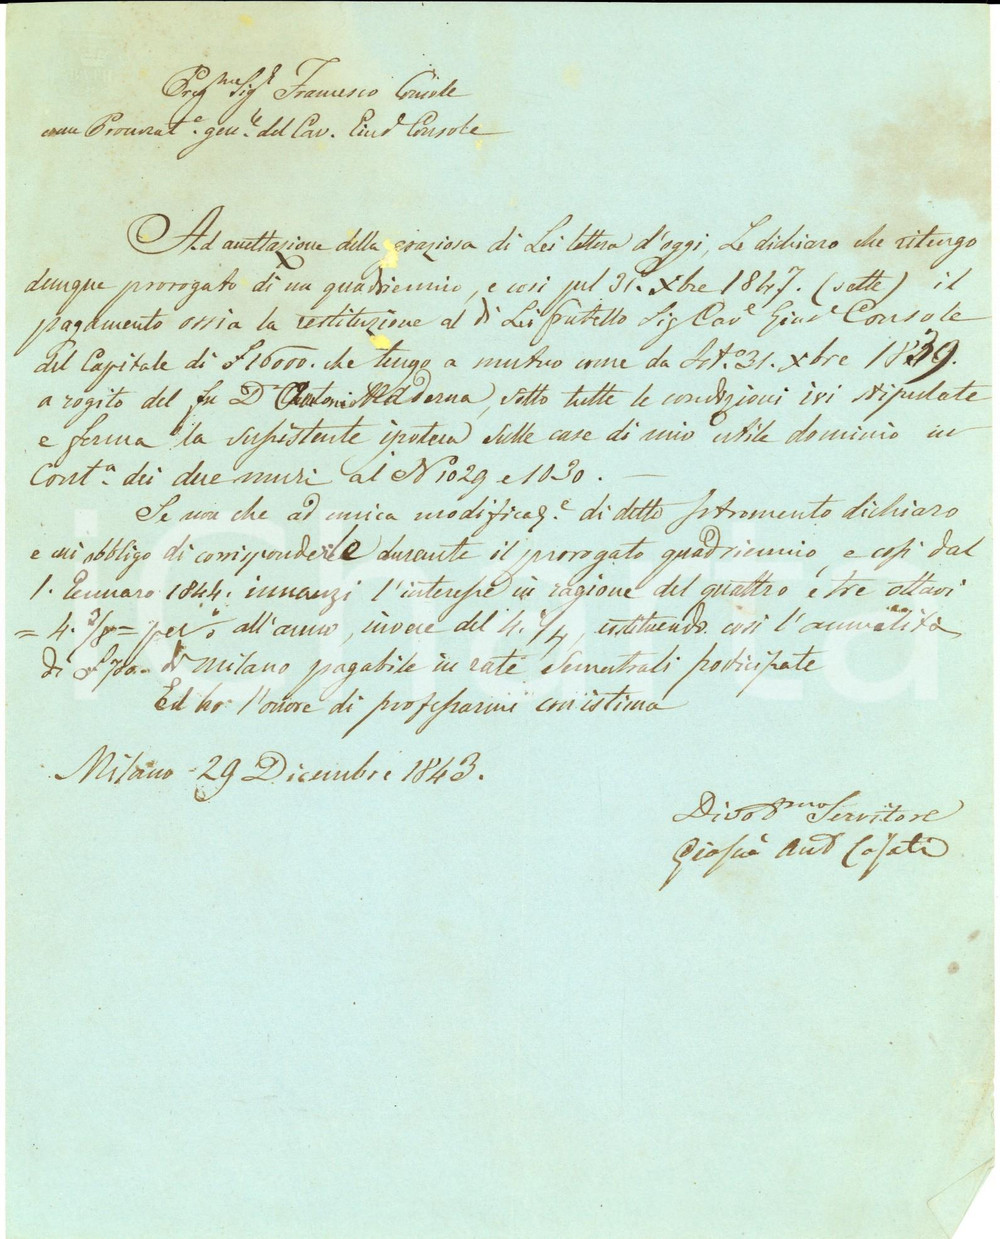 Preg.mo Sig.r Francesco Console
come Procurat.e gen.le del Cav. Giusé Console
Ad accettazione della graziosa di Lei lettera d'oggi, Le dichiaro che ritengo
dunque prorogato di un quadriennio, e così pel 31. Xbre 1847. (sette) il
pagamento ossia la restituzione al di Lei fratello Sig Cav.e Gius.e Console
del Capitale di £ 16000. che tengo a mutuo come da Ist.o 31. Xbre 1839.
a rogito del fu D.r Antonio Maderna, sotto tutte le condizioni ivi stipulate
e ferma la sussistente ipoteca sulle case di mio utile dominio in
Cont.a dei due muri al N 1029 e 1030. —
Se non che ad unica modificaz.e di detto Istromento dichiaro
e mi obbligo di corisponderle durante il prorogato quadriennio, e così dal
1. Gennaro 1844. innanzi l'interesse in ragione del quattro e tre ottavi
= 4. 3/8 = per % all'anno, invece del 4. 1/4, costituendo così l'annualità
di £ 700. di Milano pagabile in rate semestrali posticipate
Ed ho l'onore di professarmi con istima
Milano 29 Dicembre 1843.
Divot.mo Servitore
Giosuè Ant Casati
iCharta